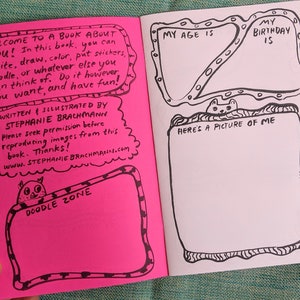 WELCOME TO A BOOK ABOUT
YOU! In this book, you can
write, draw, color, put stickers,
doodle, or whatever else you
can think of. Do it however
you want, and have fun!
WRITTEN & ILLUSTRATED BY
STEPHANIE BRACHMANN
Please seek permission before
reproducing images from this
book. Thanks!
WWW.STEPHANIEBRACHMANN.COM
DOODLE ZONE
MY AGE IS
MY
BIRTHDAY
IS
HERE'S A PICTURE OF ME